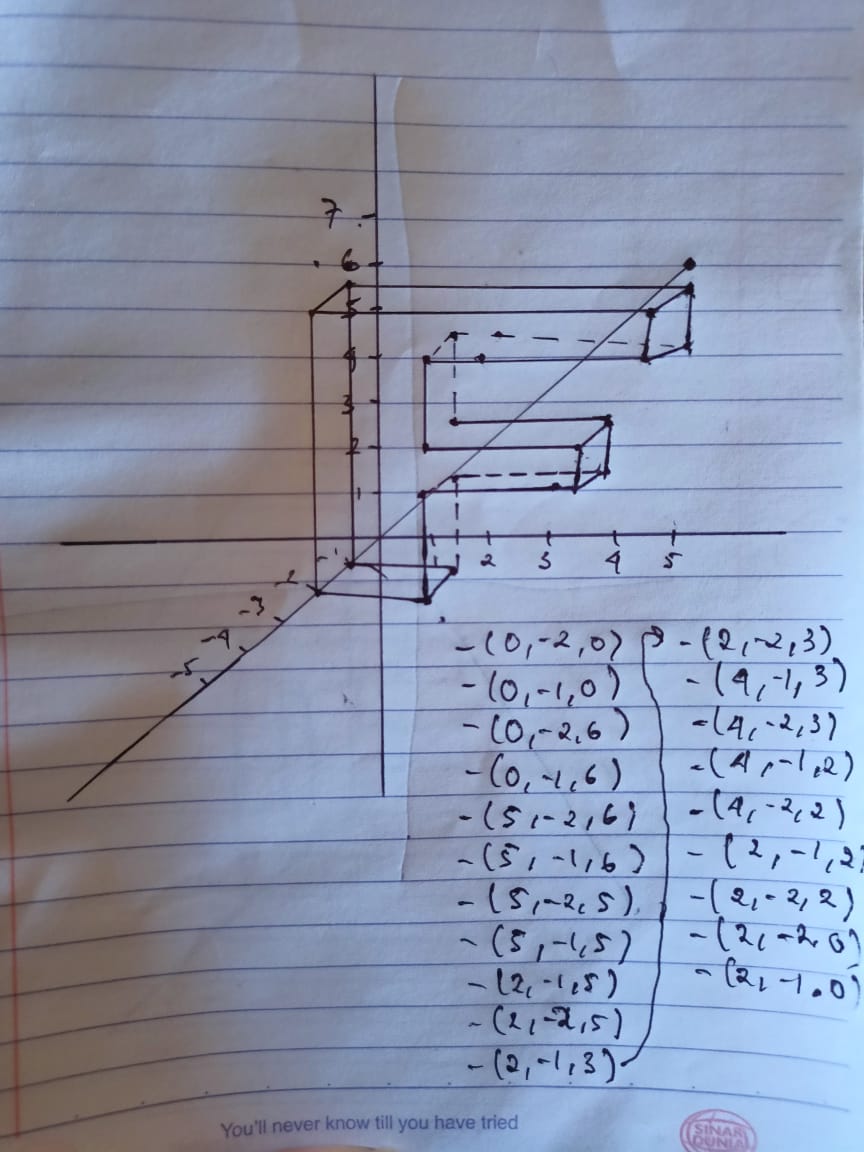 7
6
5
4
3
2
1
-1 1 2 3 4 5
-2
-3
-4
-5
-(0,-2,0)
-(0,-1,0)
-(0,-2,6)
-(0,-1,6)
-(5,-2,6)
-(5,-1,6)
-(5,-2,5)
-(5,-1,5)
-(2,-1,5)
-(2,-2,5)
-(2,-1,3)
-(2,-2,3)
-(4,-1,3)
-(4,-2,3)
-(4,-1,2)
-(4,-2,2)
-(2,-1,2)
-(2,-2,2)
-(2,-2,0)
-(2,-1.0)
You'll never know till you have tried
SINAR
DUNIA